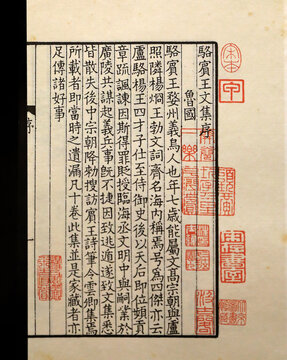 駱賓王文集序
魯國
駱賓王婺州義烏人也年七歲能屬文高宗朝與盧
照隣楊烱王勃文詞齊名海內稱焉号為四傑亦云
盧駱楊王四才子仕至侍御史後以天后即位頻貢
章疏諷諫因斯得罪貶授臨海丞文明中與嗣業於
廣陵共謀起義兵事旣不捷因致逃遁遂致文集悉
皆散失後中宗朝降勑搜訪賓王詩筆令雲卿集焉
所載者即當時之遺漏凡十卷此集並是家藏者亦
足傳諸好事
序
宋本
甲